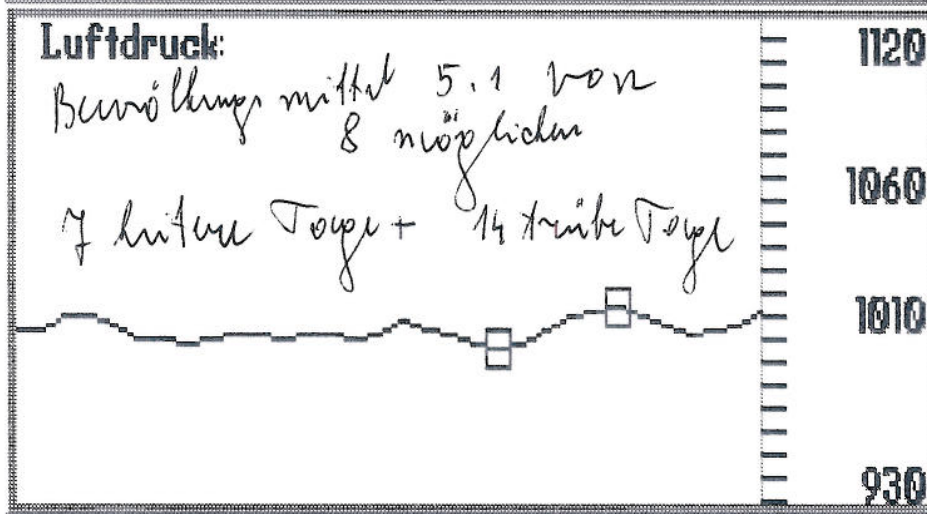 Luftdruck:
Bewölkungsmittel 5.1 von
8 möglichen
7 heitere Tage + 14 trübe Tage
1120
1060
1010
930